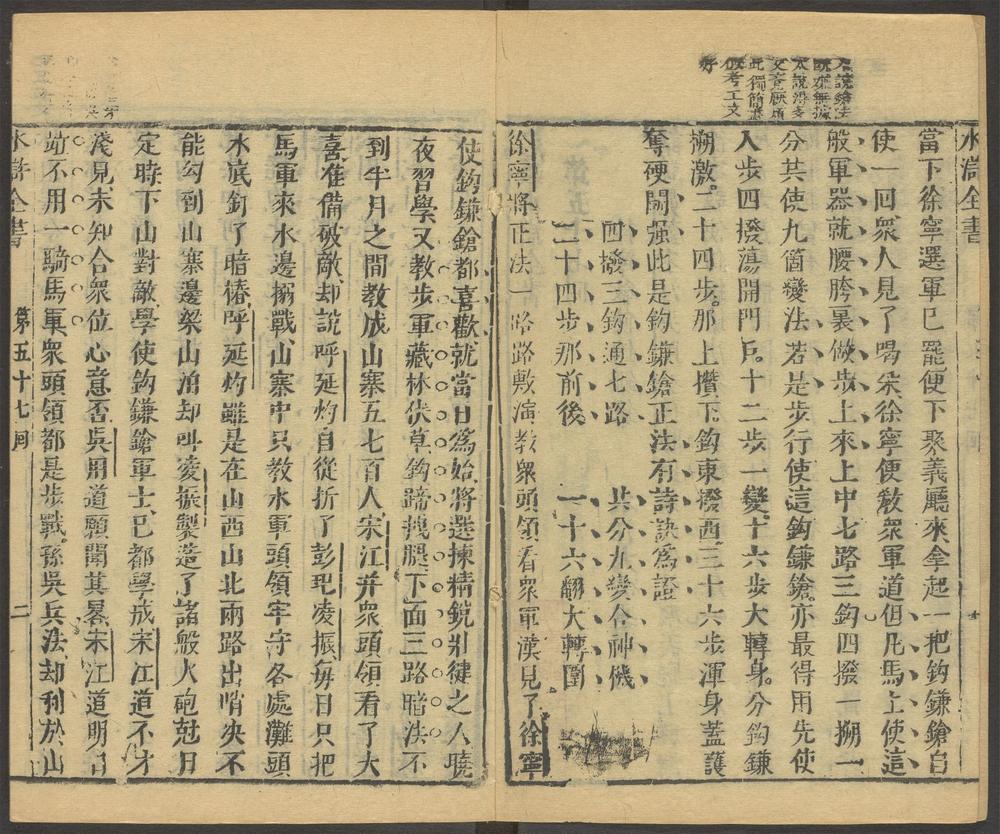 水滸全書
當下徐寧選軍已罷便下聚義廳來拿起一把鈎鎌鎗自
使一回衆人見了喝采徐寧便教衆軍道但凡馬上使這
般軍器就腰胯裏做步上來上中七路三鈎四撥一搠一
分共使九箇變法若是步行使這鈎鎌鎗亦最得用先使
人步四撥蕩開門戶十二步一變十六步大轉身分鈎鎌
搠激二十四步那上攢下鈎東撥西三十六步渾身蓋護
奪硬鬪强此是鈎鎌鎗正法有詩訣爲證
四撥三鈎通七路
共分九變合神機
二十四步那前後
一十六翻大轉圍
徐寧將正法一路路敷演教衆頭領看衆軍漢見了徐寧
使鈎鎌鎗都喜歡就當日爲始將選揀精銳壯健之人曉
夜習學又教步軍藏林伏草鈎蹄拽腿下面三路暗法不
到半月之間教成山寨五七百人宋江并衆頭領看了大
喜准備破敵却說呼延灼自從折了彭玘凌振每日只把
馬軍來水邊搦戰山寨中只教水軍頭領牢守各處灘頭
水底釘了暗樁呼延灼雖是在山西山北兩路出哨决不
能勾到山寨邊梁山泊却叫凌振製造了諸般火砲尅日
定時下山對敵學使鈎鎌鎗軍士已都學成宋江道不才
淺見未知合衆位心意否吳用道願聞其畧宋江道明日
並不用一騎馬軍衆頭領都是步戰孫吳兵法却利於山
水滸全書
第五十七囘
二